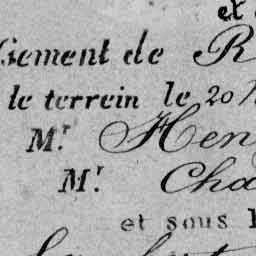 et
sement de R
le terrein le 20
Mr. Hen
Mr. Cha
et sous